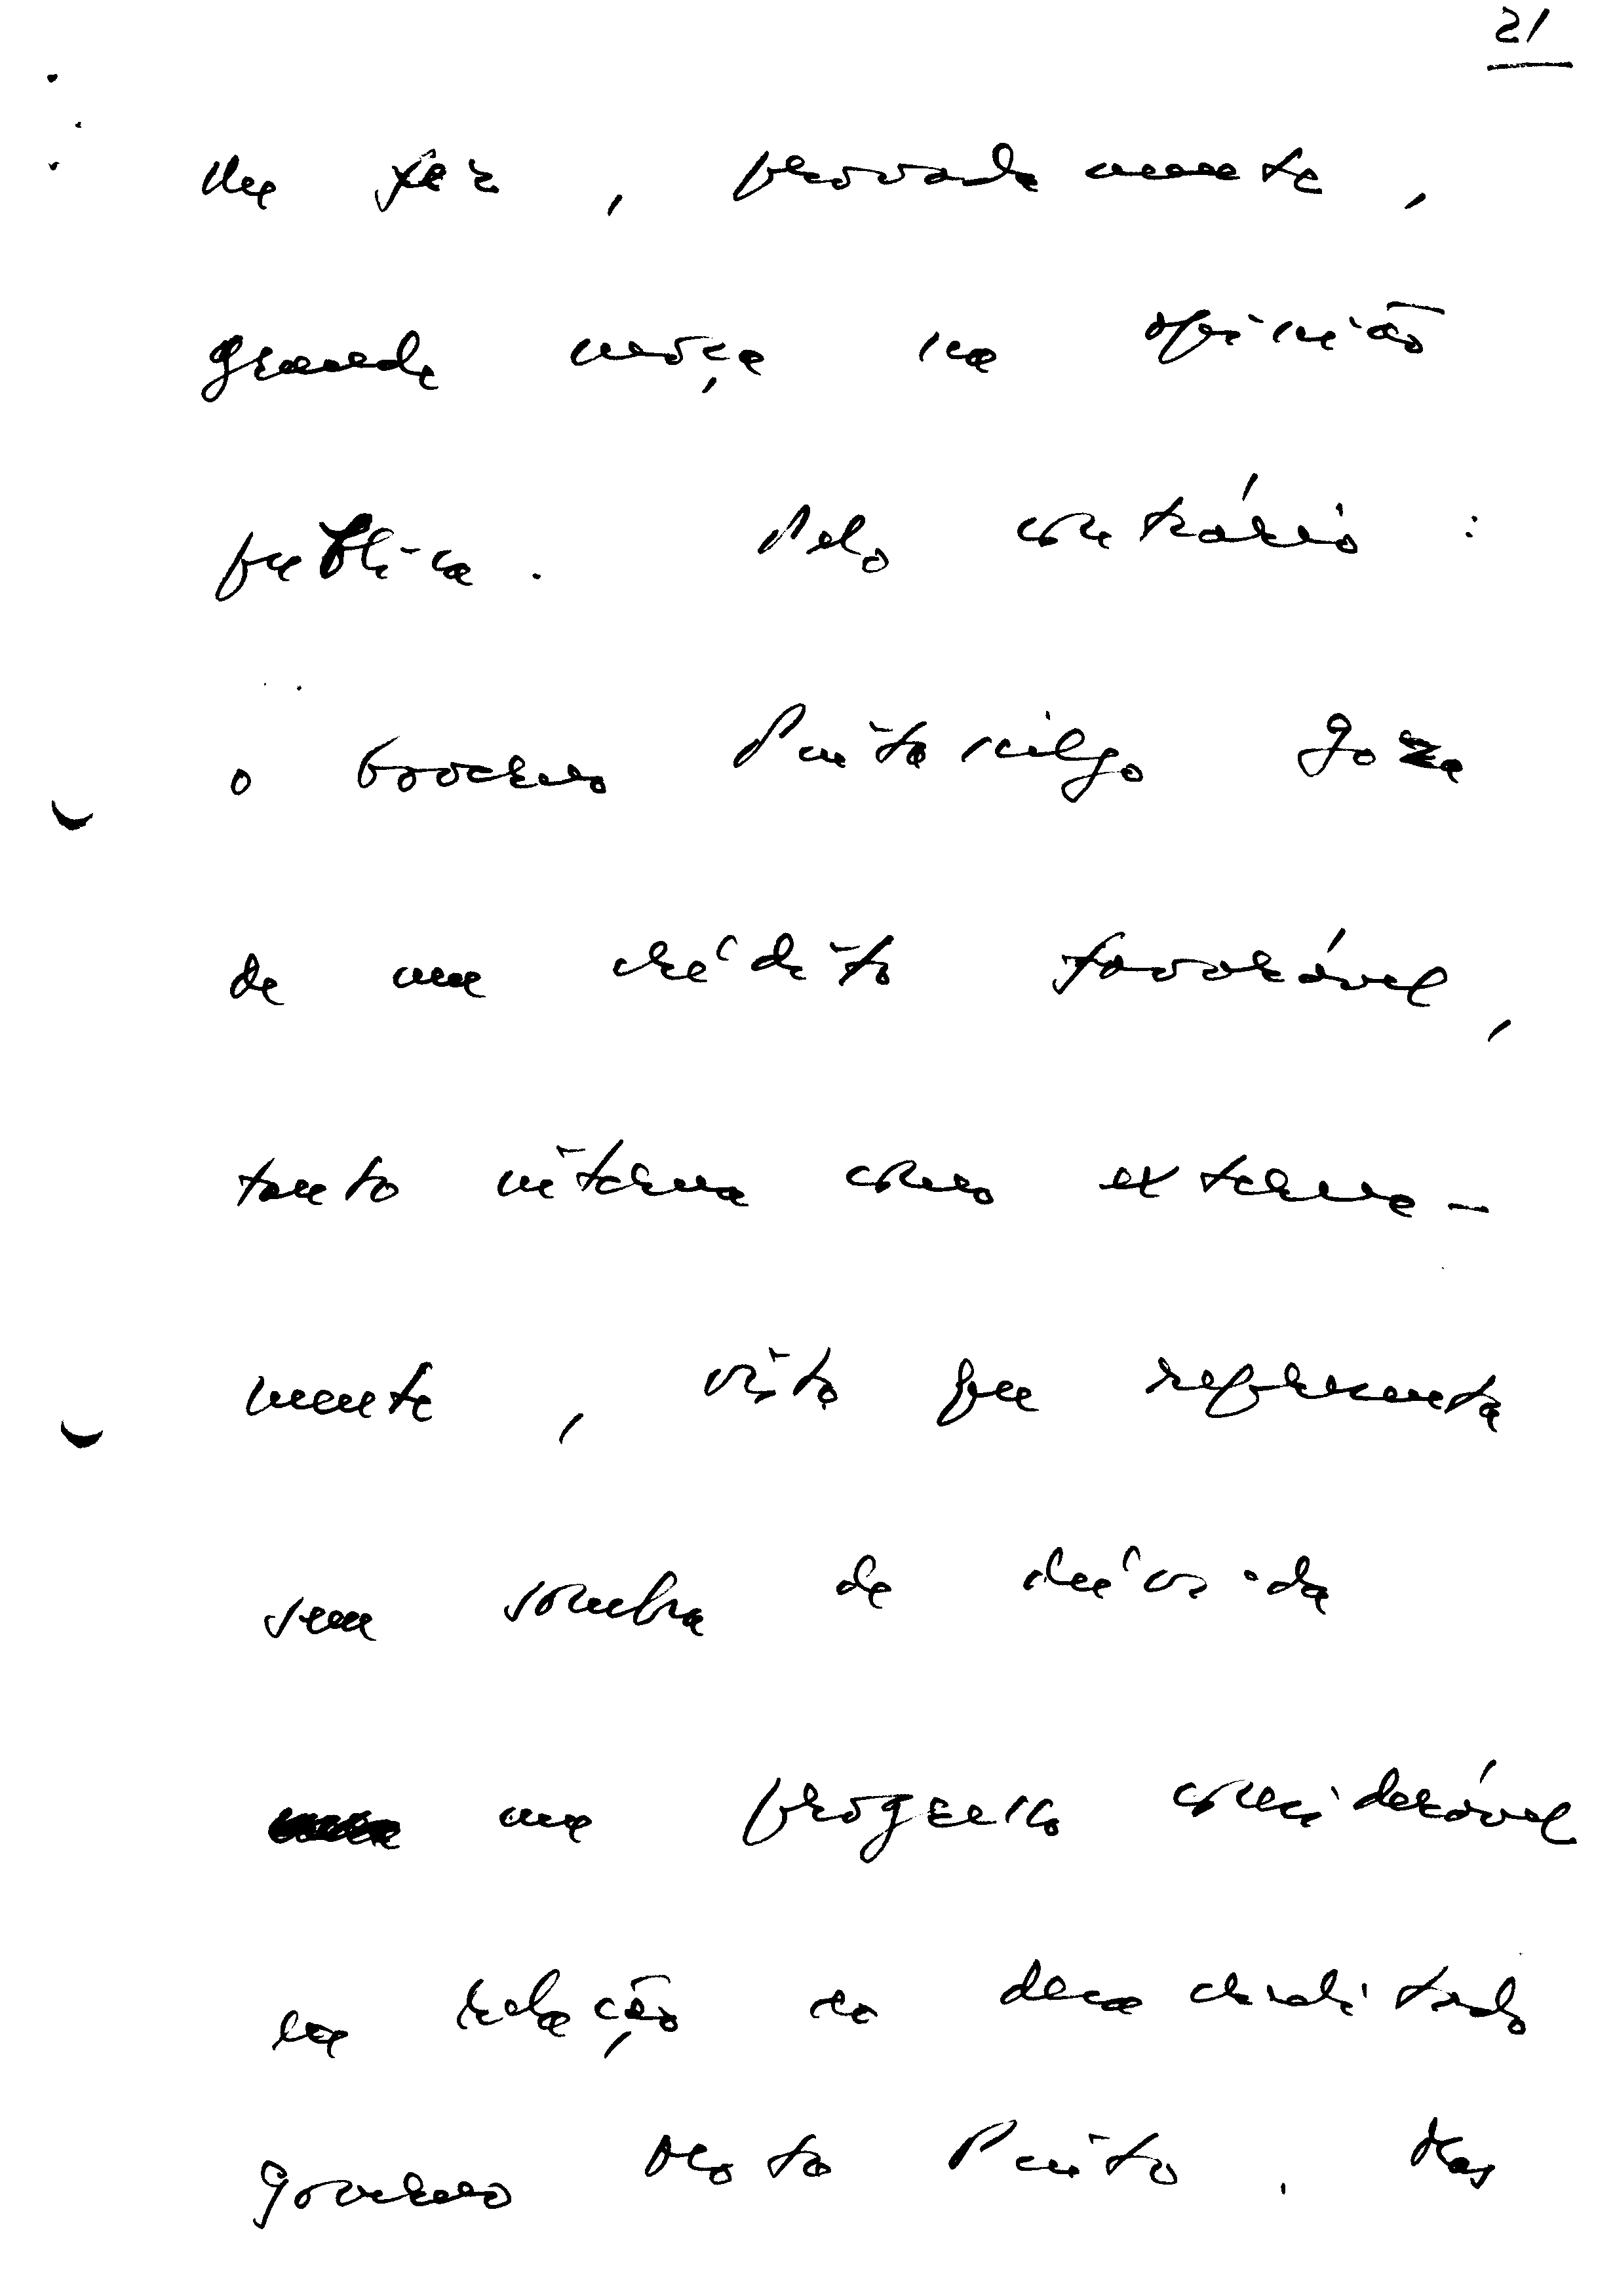 21
fez, provadamente,
grande moça na opinião
publica. Pelo contrário:
o Governo Pintasilgo goza
de um crédito favorável,
tanto interna como externa-
mente, visto que representa
sem sombra de dúvida
um progresso considerável
em relação ao desacreditado
governo Mota Pinto. Mas